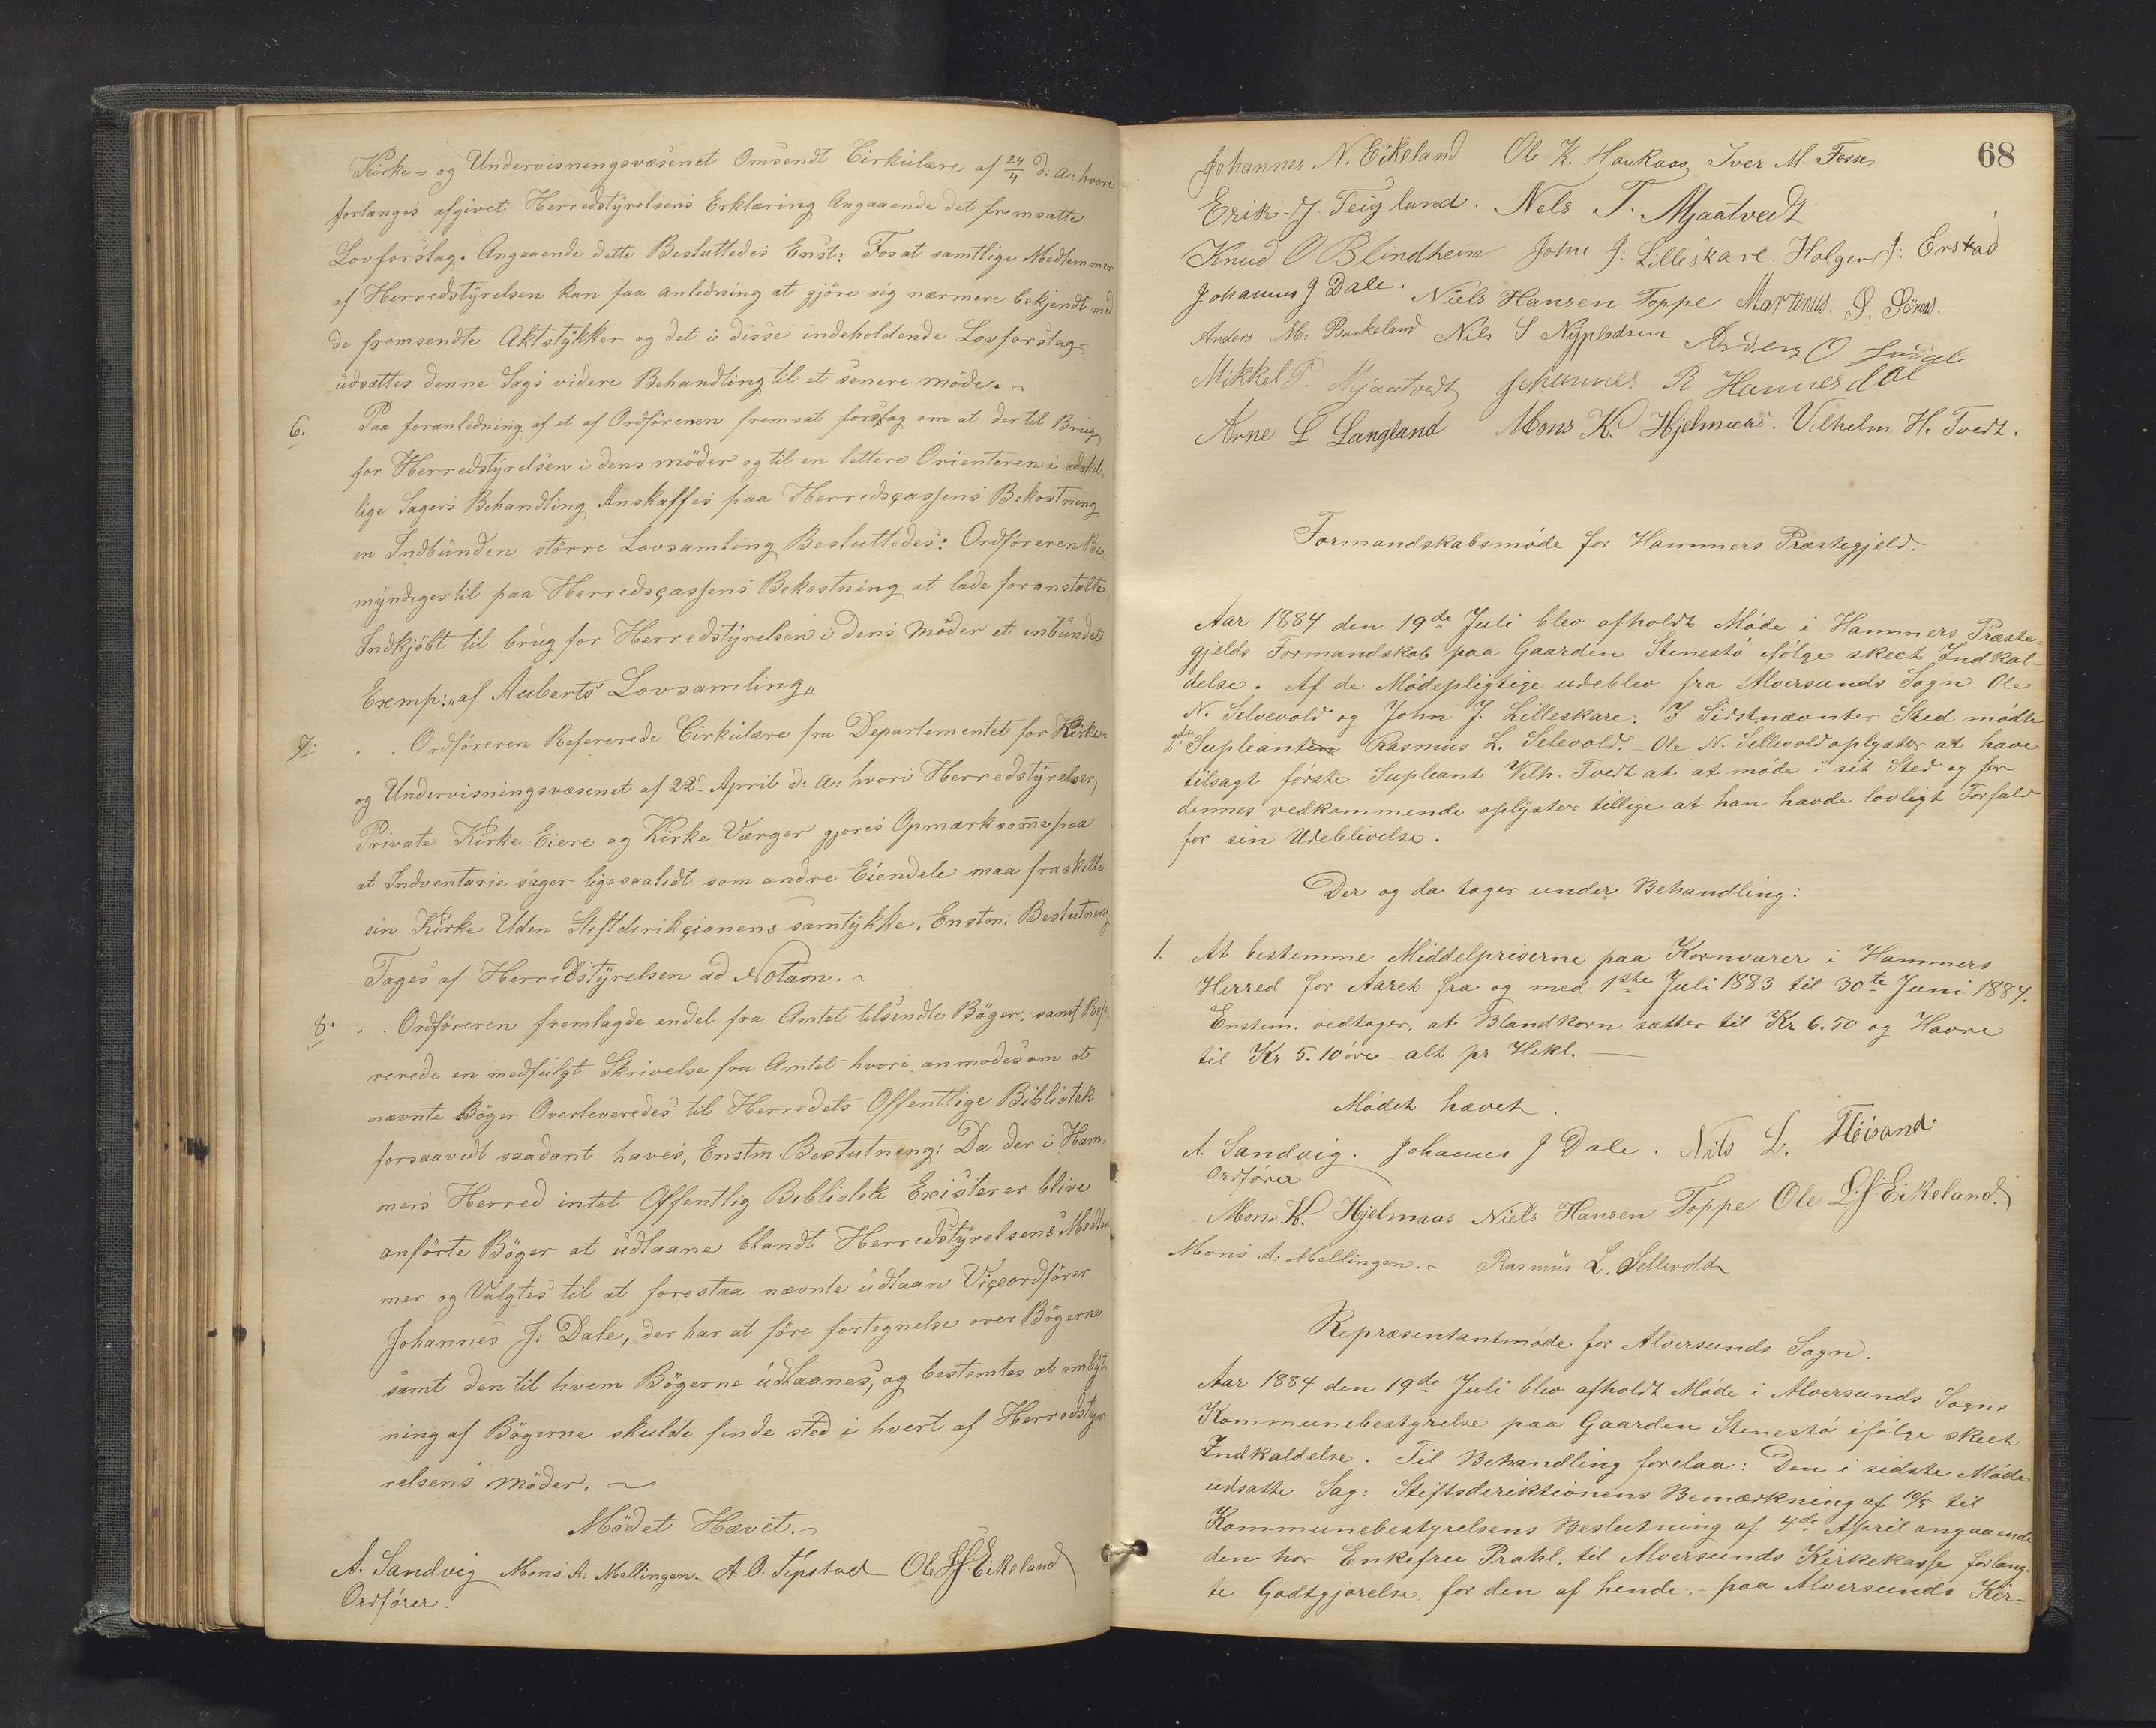 Kirke- og Undervisningsvæsenet Omsendt Cirkulære af 24/4 d: a: hvori
forlanges afgivet Herredstyrelsens Erklæring Angaaende det fremsatte
Lovforslag. Angaaende dette Besluttedes Enst: For at samtlige Medlemmer
af Herredstyrelsen kan faa anledning at gjöre sig nærmere bekjendt med
de fremsendte Aktstykker og det i disse indeholdende Lovforslag
udsættes denne Sags videre Behandling til et senere möde.
6. Paa foranledning af et af Ordförenen fremsat forslag om at der til Brug
for Herredstyrelsen i dens möder og til en lettere Orienteren i adskil-
lige Sagers Behandling Anskaffes paa Herredscassens Bekostning
en Indbunden större Lovsamling Besluttedes: Ordföreren Be-
myndiges til paa Herredscassens Bekostning at lade foranstalte
Indkjöbt til brug for Herredstyrelsen i dens Möder et inbundet
Exemp: "af Auberts Lovsamling"
7. Ordföreren Refererede Cirkulære fra Departementet for Kirke-
og Undervisningsvæsenet af 22. April d: a: hvori Herredstyrelser,
Private Kirke Eiere og Kirke Værger gjöres Opmærksomme paa
at Indventarie sager ligesaalidt som andre Eiendele maa fraskilles
sin Kirke Uden Stiftdirikcionens samtykke. Enstm: Beslutning
Tages af Herredstyrelsen ad Notam.
8. Ordföreren fremlagde endel fra Amtet tilsendte Böger, samt Refe-
rerede en medfulgt Skrivelse fra Amtet hvori anmodes om at
nævnte Böger Overleveredes til Herredets Offentlige Bibliotek
forsaavidt saadant haves, Enstm. Beslutning: Da der i Ham-
mers Herred intet Offentlig Bibliotek Existerer blive
anförte Böger at udlaane blandt Herredstyrelsens Medlem-
mer og Valgtes til at forestaa nævnte udlaan Viceordförer
Johannes J: Dale, der har at före fortegnelse over Bögerne
samt den til hvem Bögerne udlaanes, og bestemtes at ombyt-
ning af Bögerne skulde finde sted i hvert af Herredsty-
relsens möder.
Mödet Hævet.
A. Sandvig Mons A: Mellingen. A. O. Tepstad Ole L. J. Eikeland
Ordförer.
68
Johannes. N. Eikeland Ole K. Haukaas Iver M. Fosse
Erik. J. Teigland. Nels T. Mjaatvedt
Knud O Blindheim John J: Lilleskare. Holger J: Erstad
Johannes J Dale. Niels Hansen Toppe Martinus. S.
Anders M: Burkeland Nils S Anders O
Mikkel P. Mjaatvedt Johannes R Hannesdal
Arne L Langland Mons K. Hjelmaas. Vilhelm H. Tvedt.
Formandskabsmöde for Hammers Præstegjeld.
Aar 1884 den 19de Juli blev afholdt Möde i Hammers Præste-
gjelds Formandskab paa Gaarden Stenestö ifölge skeet Indkal-
delse. Af de Mödepligtige udeblev fra Alversunds Sogn Ole
N. Selvevold og John J. Lilleskare. I Sidstnævntes Sted mödte
2den Supleant Rasmus L. Selevold. Ole N. Sellevold oplystes at have
tilsagt förste Supleant Vilh. Tvedt at at möde i sit Sted og for
dennes vedkommende oplystes tillige at han havde lovligt Forfald
for sin Udeblivelse.
Der og da toges under Behandling:
1. At bestemme Middelpriserne paa Kornvarer i Hammers
Herred for Aaret fra og med 1ste Juli 1883 til 30te Juni 1884.
Enstem. vedtoges, at Blandkorn sættes til Kr 6.50 og Havre
til Kr 5.10 öre - alt pr Hekl.
Mödet hævet.
A. Sandvig. Johannes J Dale. Nils L. Flöisand
Ordförer
Mons K. Hjelmaas Niels Hansen Toppe Ole L. J. Eikeland.
Mons A. Mellingen. Rasmus L. Sellevold
Repræsentantmöde for Alversunds Sogn.
Aar 1884 den 19de Juli blev afholdt Möde i Alversunds Sogns
Kommunebestyrelse paa Gaarden Stenestö ifölge skeet
Indkaldelse. Til Behandling forelaa: Den i sidste Möde
udsatte Sag: Stiftsdirektionens Bemærkning af 10/5 til
Kommunebestyrelsens Beslutning af 4de April angaaende
den hos Enkefru Prahl, til Alversunds Kirkekasse forlang-
te Godtgjörelse, for den af hende, paa Alversunds Kir-